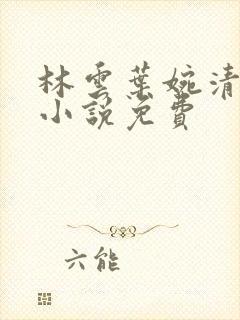 林雲葉婉清
小說免費
六能